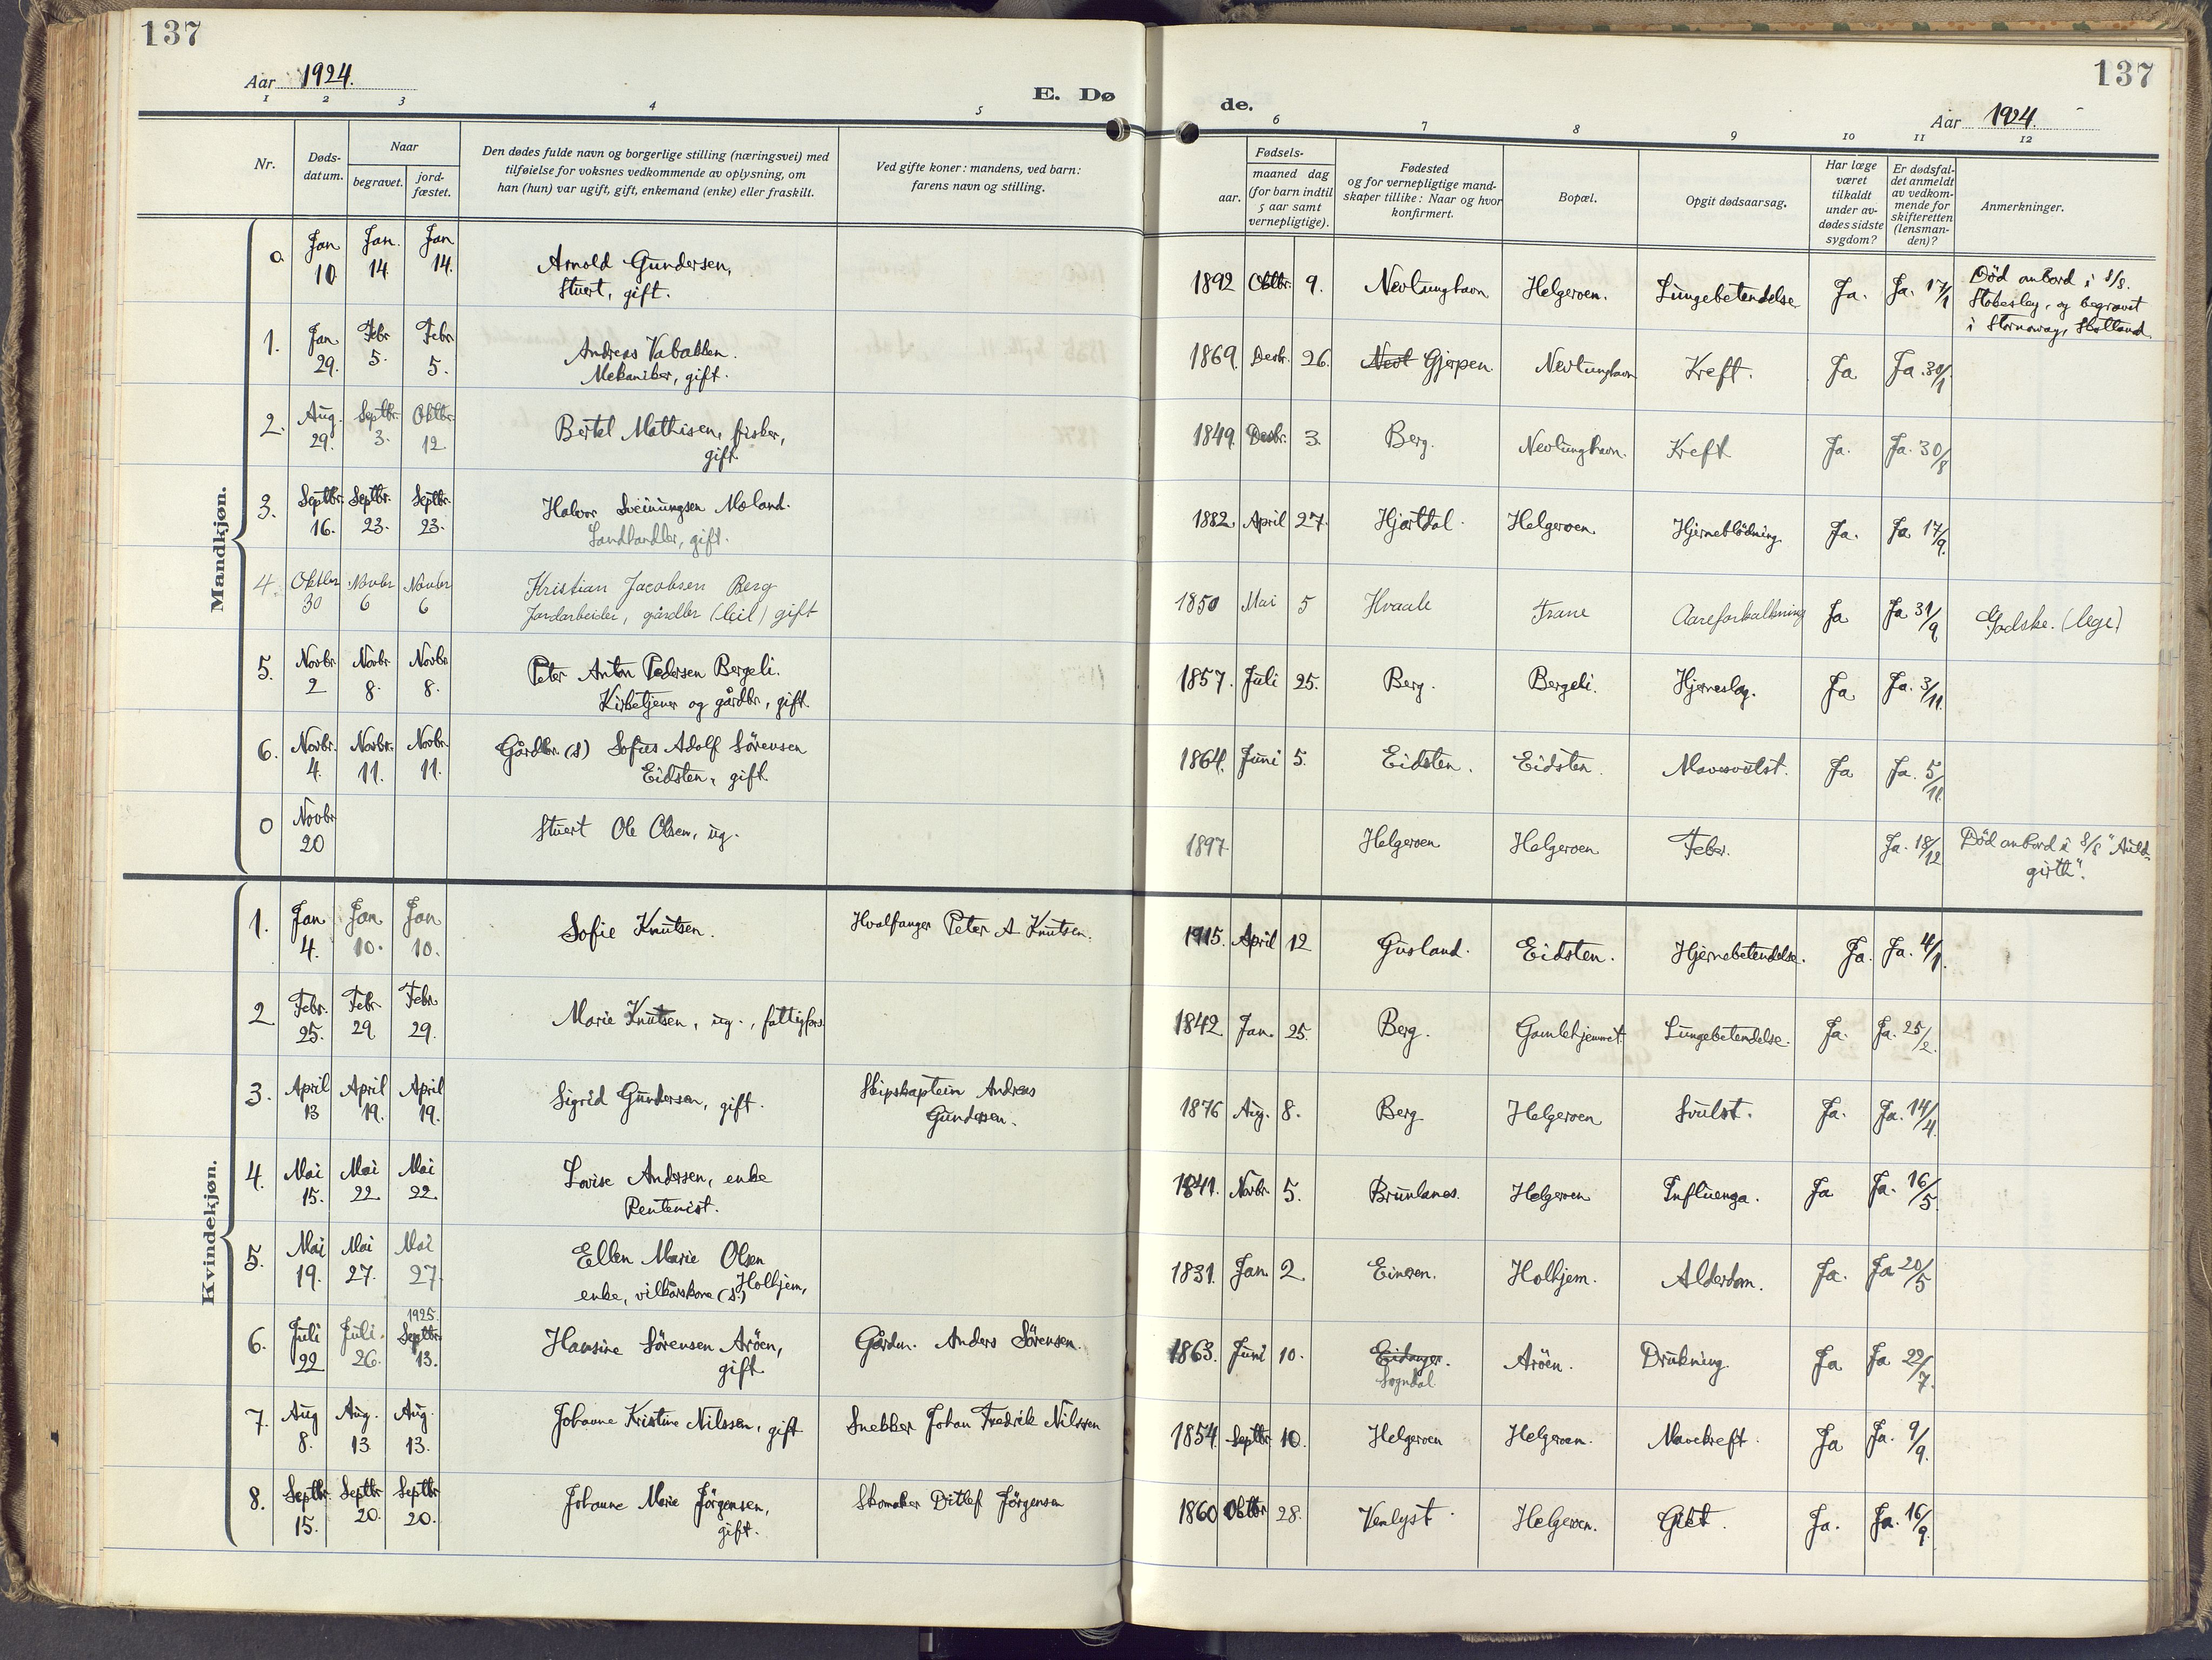 137
Aar 1924.
E. Dø
1 2 3 4 5
Nr.
Døds-
datum.
Naar
begravet.
jord-
fæstet.
Den dødes fulde navn og borgerlige stilling (næringsvei) med
tilføielse for voksnes vedkommende av oplysning, om
han (hun) var ugift, gift, enkemand (enke) eller fraskilt.
Ved gifte koner: mandens, ved barn:
farens navn og stilling.
137
de.
Aar 1924.
6 7 8 9 10 11 12
Fødsels-
aar.
maaned dag
(for barn indtil
5 aar samt
vernepligtige).
Fødested
og for vernepligtige mand-
skaper tillike: Naar og hvor
konfirmert.
Bopæl.
Opgit dødsaarsag.
Har læge
været
tilkaldt
under av-
dødes sidste
sygdom?
Er dødsfal-
det anmeldt
av vedkom-
mende for
skifteretten
(lensman-
den)?
Anmerkninger.
Mandkjøn.
0 Jan 10 Jan. 14. Jan 14. Arnold Gundersen,
Stuert, gift.
1892 Oktbr. 9. Nevlunghavn Helgeroen. Lungebetendelse Ja. Ja. 17/1
Död ombord i S/S.
og begravet
i Stornoway, Skotland.
1. Jan 29. Febr 5. Febr 5. Andreas
Mekaniker, gift.
1869. Desbr. 26. Nevl Gjerpen. Nevlunghavn Kreft. Ja Ja. 30/1
2. Aug. 29. Septbr. 3. Oktbr. 12 Bertel Mathisen, fisker,
gift
1849. Desbr. 3. Berg. Nevlunghavn. Kreft Ja. Ja. 30/8
3. Septbr. 16. Septbr. 23. Septbr. 23. Halvor Sveinungsen Moland.
Landhandler, gift.
1882. April 27. Hjartdal. Helgeroen. Hjerneblödning Ja. Ja 17/9.
4. Oktbr 30 Novbr 6 Novbr 6 Kristian Jacobsen Berg
Jordarbeider, gårdbr (leil) gift
1850 Mai 5 Hvaale Trane Aareforkalkning Ja Ja 31/9 Godske. (lege)
5. Novbr. 2 Novbr. 8. Novbr 8. Peter Anton Pedersen Bergeli.
Kirketjener og gårdbr., gift
1857. Juli 25. Berg. Bergeli. Hjerneslag. Ja Ja. 3/11.
6. Novbr. 4. Novbr. 11. Novbr. 11. Gårdbr. (S) Sofus Adolf Sörensen
Eidsten, gift
1864. Juni 5. Eidsten. Eidsten. Mavesvulst. Ja Ja. 5/11
0 Novbr 20 Stuert Ole Olsen, ug.
1897 Helgeroen Helgeroen Feber. Ja. 18/12 Död ombord i S/S "Auld-
girth".
Kvindekjøn.
1. Jan 4. Jan 10. Jan 10. Sofie Knutsen. Hvalfanger Peter A Knutsen.
1915. April 12 Gusland. Eidsten. Hjernebetendelse. Ja. Ja. 4/1.
2 Febr. 25. Febr 29. Febr 29. Marie Knutsen, ug., fattigfors.
1842. Jan. 25. Berg. Gamlehjemmet. Lungebetendelse. Ja. Ja. 25/2.
3. April 13 April 19. April 19. Sigrid Gundersen, gift. Skipskaptein Andreas
Gundersen.
1876 Aug. 8. Berg Helgeroen Svulst. Ja. Ja. 14/4.
4. Mai 15. Mai 22 Mai 22. Lovise Andersen, enke
Rentenist.
1841. Novbr. 5. Brunlanes. Helgeroen Influenza. Ja Ja. 16/5.
5. Mai 19. Mai 27. Mai 27. Ellen Marie Olsen
Holhjem,
enke, vilkårskone (S.)
1831. Jan. 2 Eineren. Holhjem. Alderdom. Ja. Ja 20/5
6. Juli 22 Juli. 26. 1925. Septbr. 13. Hansine Sörensen Aröen,
gift
Gårdm. Anders Sörensen.
1863. Juni 10. Eidanger.
Sogndal
Aröen. Drukning. Ja Ja 22/7.
7. Aug 8. Aug. 13 Aug. 13. Johanne Kristine Nilssen, gift Snekker Johan Fredrik Nilssen
1854. Septbr 10. Helgeroen Helgeroen. Mavekreft. Ja Ja. 9/9.
8. Septbr. 15. Septbr 20. Septbr 20. Johanne Marie Jörgensen,
gift.
Skomaker Ditlef Jörgensen
1860 Oktbr 28. Venlyst. Helgeroen. Gikt. Ja. Ja. 16/9.